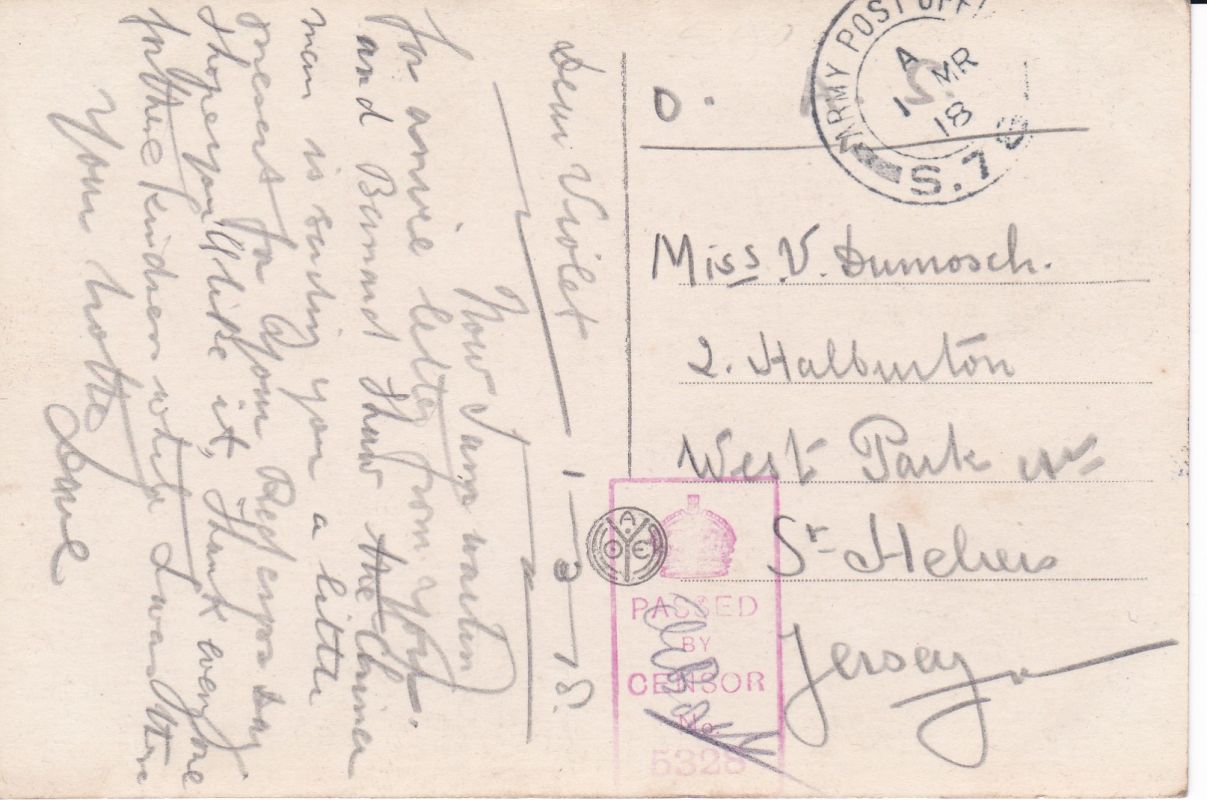 Dear Violet 1-3-18.
Now I am waiting
for a nice letter from you.
and Bernard the China
man is sending you a little
present for your
I hope you'll like it, Thank everyone
for their kindness while I was there
Your brother
O.
ARMY POST OFFICE
A
1 MR
18
S.75
Miss V. Dumosch.
2. Halburton
West Park
St Heliers
Jersey
PASSED
BY
CENSOR
No.
5328